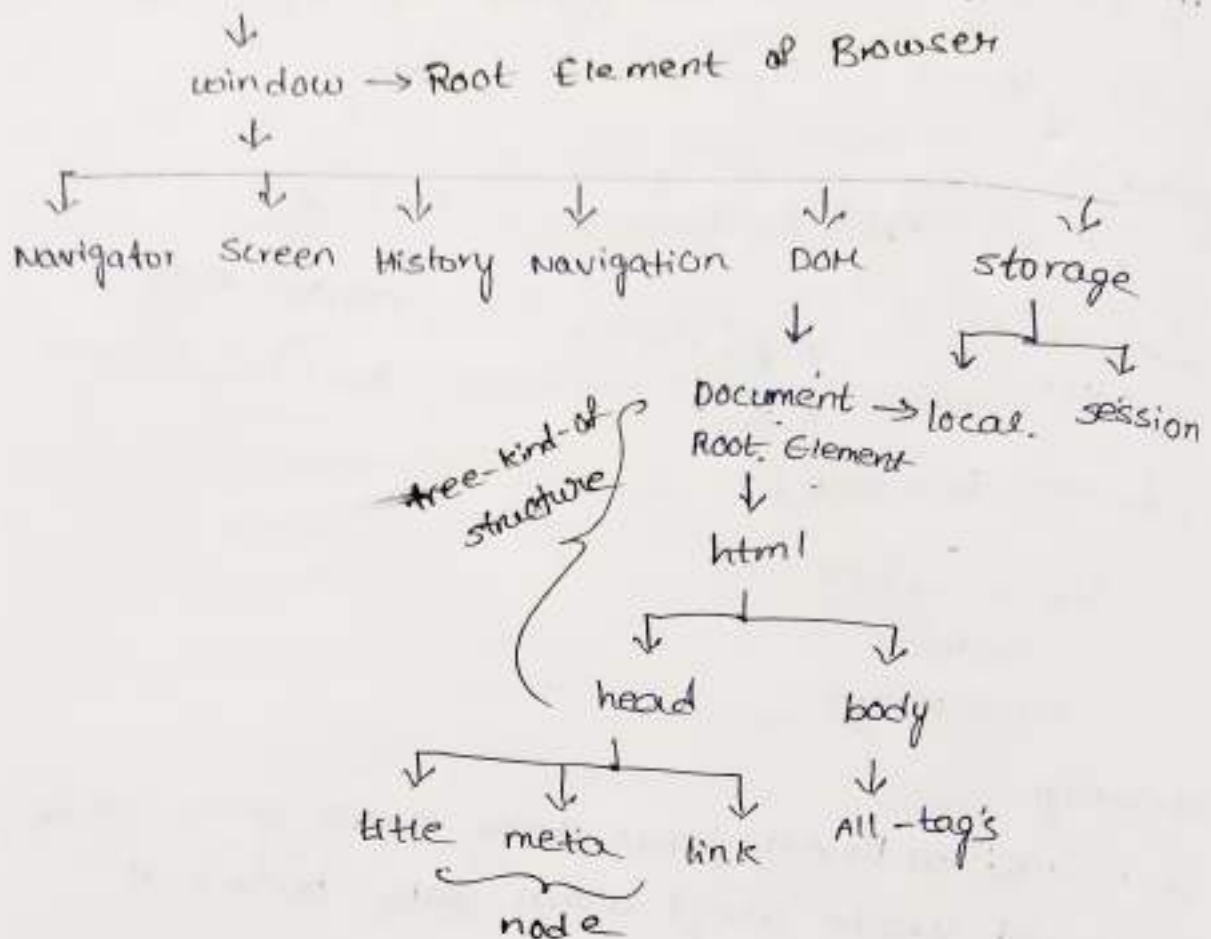 window → Root Element of Browser
Navigator Screen History Navigation DOM storage
Document → local. session
Root. Element
tree-kind-of
structure
html
head body
title meta link All-tag's
node